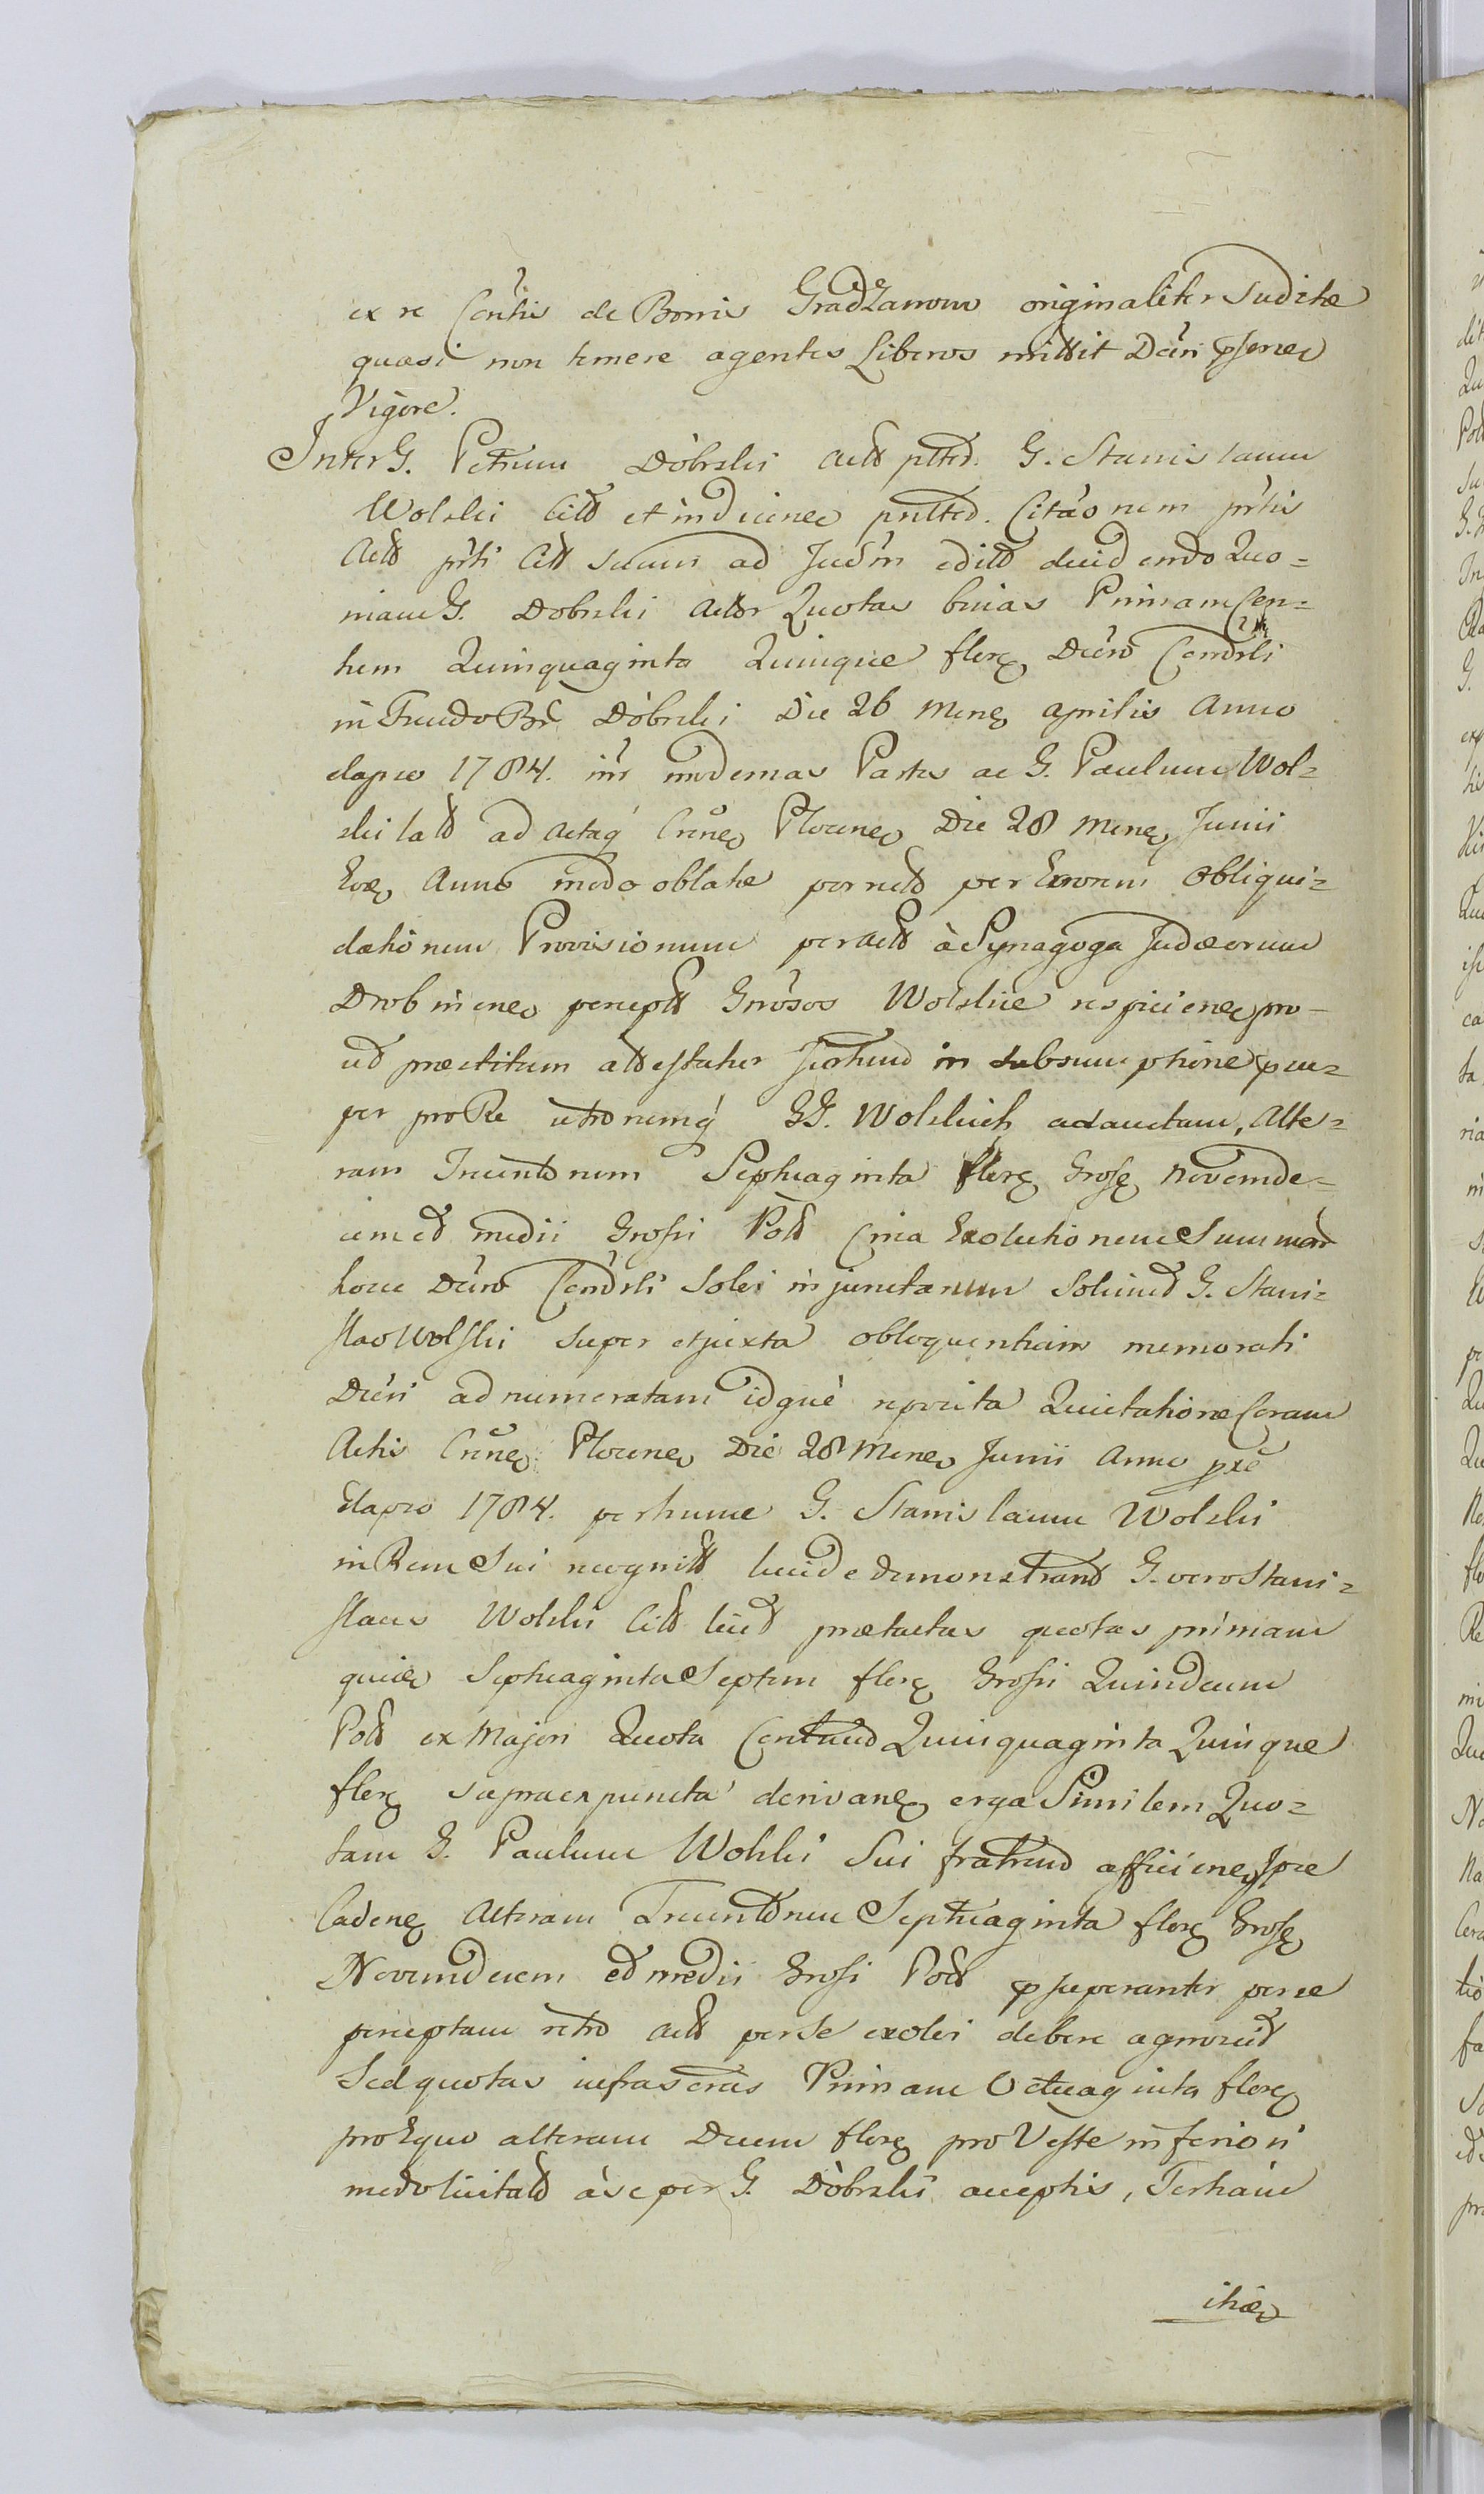 ex re Contis de Bonis Gradzanowo originaliter Judite
quasi non temere agentes Liberos mittit Dcri pserne
Vigore.
Inter G. Petrum Dobrski Actt plttd. G. Stanislaum
Wolski Citt et indicinec pnlttd. Citaonem prtis
Actt prti Citt suam ad Judm editt decidendo Quo=
niam G. Dobrski Acttr Quotas binas Primam Cen=
tum Quinquaginta Quinque flore Dcro Condrli
in Fundo Bn Dobrski Die 26 Mens Aprilis Anno
elapso 1784. inr modernas Partes ac G. Paulum Wol=
ski latt ad Actaq Crne Plocnes Die 28 Mens Junii
Eoe Anno modo oblatæ pornett per Errorem Obliqui=
dationem Provisionum peractt à Synagoga Judæorum
Drobinenes perceptt Gnrosos Wolskie respicienes pro-
ut præstitum attestatur Jurtum in subsumptione prn=
per pro Re utronemq GG. Wolskich adauctam, Alte=
ram Trecentonum Septuaginta flore Grose Novemde=
cim et medii Grossi Poll Cria Exolutionem Summar
horu Dcro Condrli Solvi injunctarum Soliund G. Stani=
slao Wolski super et juxta obloquentiam memorati
Dcri adnumeratam idque nporita Quietatione Coram
Actis Crne Plocnes Die 28 Mens Junii Anno pxe
Elapso 1784. per hunc G. Stanislaum Wolski
in Rem Sui recognitt lucide demonstrand G. vero Stani=
slaus Wolski Citt licet prætactas quotas primam
quide Septuaginta Septem flore Grossi Quindecim
Poll ex Majori Quota Centum Quinquaginta Quinque
flore supra expuncta derivane erga Similem Quo=
tam G. Paulum Wolski Sui fratrem afficiene Ipse
Cadene Alteram Trecentonum Septuaginta flore Grose
Novemdecem et medii Grossi Poll psuperanter per se
perceptam retro Actt per se exolvi debere agnoscit
Sed quotas infrascras Primam Octuaginta flore
pro Equo alteram Decem flore pro Veste inferiori
modo licitatt à se per G. Dobrski acceptis, Tertiam
itide